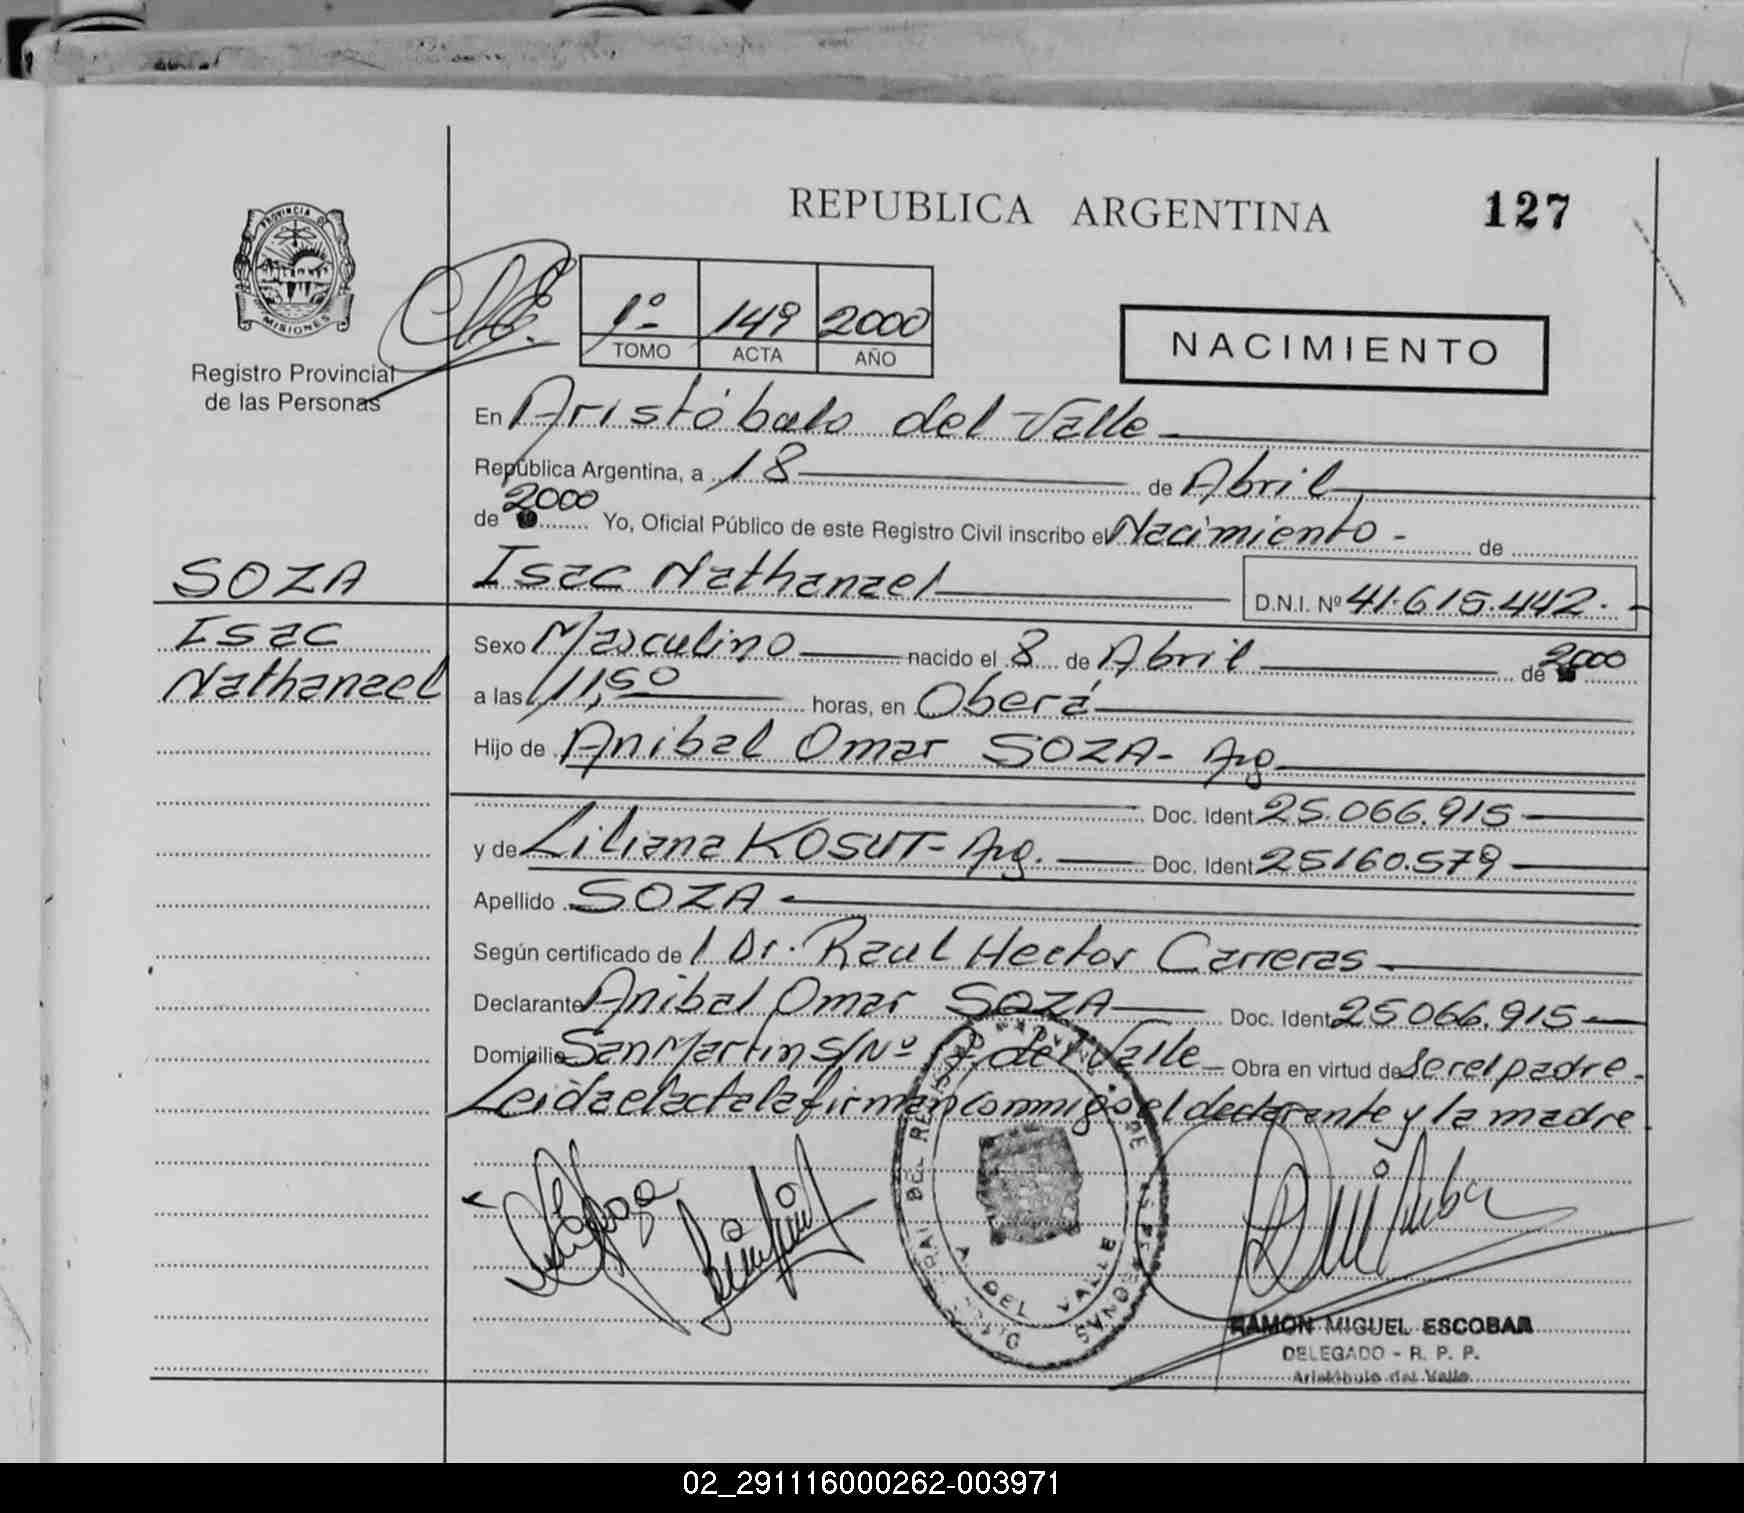 REPUBLICA ARGENTINA
127
PROVINCIA DE
MISIONES
Registro Provincial
de las Personas
1º 149 2000
TOMO ACTA AÑO
NACIMIENTO
En Aristóbulo del Valle
República Argentina, a 18 de Abril
de 2000 Yo, Oficial Público de este Registro Civil inscribo el Nacimiento - de
SOZA
Isac
Nathanael
Isac Nathanael D.N.I. Nº 41.615.442.-
Sexo Masculino nacido el 8 de Abril de 2000
a las 11,50 horas, en Oberá
Hijo de Anibal Omar SOZA - Arg.
Doc. Ident 25.066.915
y de Liliana KOSUT - Arg. Doc. Ident 25160.579
Apellido SOZA
Según certificado de l Dr. Raul Hector Carreras
Declarante Anibal Omar SOZA Doc. Ident 25066.915
Domicilio San Martin S/Nº A. del Valle Obra en virtud de ser el padre.
Leida el acta la firman conmigo el declarante y la madre
A. DEL VALLE
RAMON MIGUEL ESCOBAR
DELEGADO - R. P. P.
Aristóbulo del Valle
02_291116000262-003971